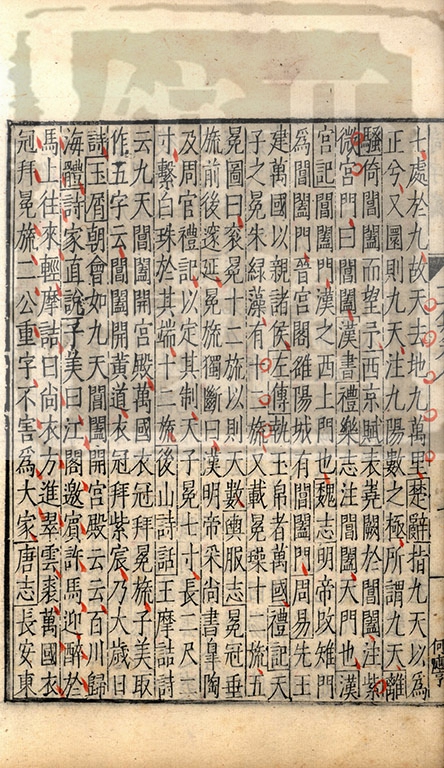 七處於九故天去地九萬里楚辭指九天以爲
正兮又圜則九天注九陽數之極所謂九天離
騷倚閶闔而望予西京賦表嶤闕於閶闔注紫
微宮門曰閶闔漢書禮樂志注閶闔天門也漢
宮記閶闔門漢之西上門也魏志明帝改雉門
爲閶闔門晉宮閣雒陽城有閶闔門周易先王
建萬國以親諸侯左傳執玉帛者萬國禮記天
子之冕朱緑藻有十二旒又載冕璪十二旒五
冕圖曰衮冕十二旒以則天數輿服志冕冠垂
旒前後邃延冕旒獨斷曰漢明帝采尚書臯陶
及周官禮記以定其制天子冕七寸長二尺二
寸繫白珠於其端十二旒後山詩話王摩詰詩
云九天閶闔開宮殿萬國衣冠拜冕旒子美取
作五字云閶闔開黃道衣冠拜紫宸乃大歲日
詩玉屑朝會如九天閶闔開宮殿云云百川歸
海體詩家直說子美曰江閣邀賔許馬迎醉於
馬上往來輕摩詰曰尚衣方進翠雲裘萬國衣
冠拜冕旒二公重字不害爲大家唐志長安東